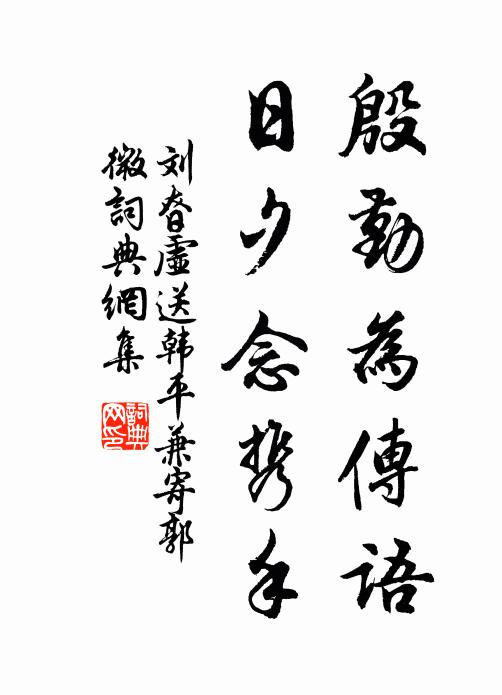 殷勤為傳語
日夕念携手
刘眘虛送韩平兼寄郭
微詞典網集
詞典網印